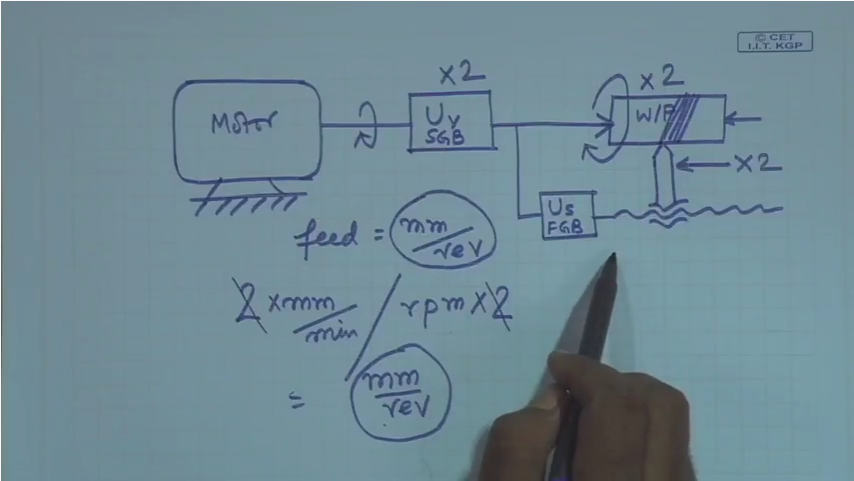 © CET
I.I.T. KGP
×2
×2
Motor
Uv
SGB
W/P
×2
Us
FGB
feed = mm/rev
2 × mm/min / rpm × 2
= mm/rev